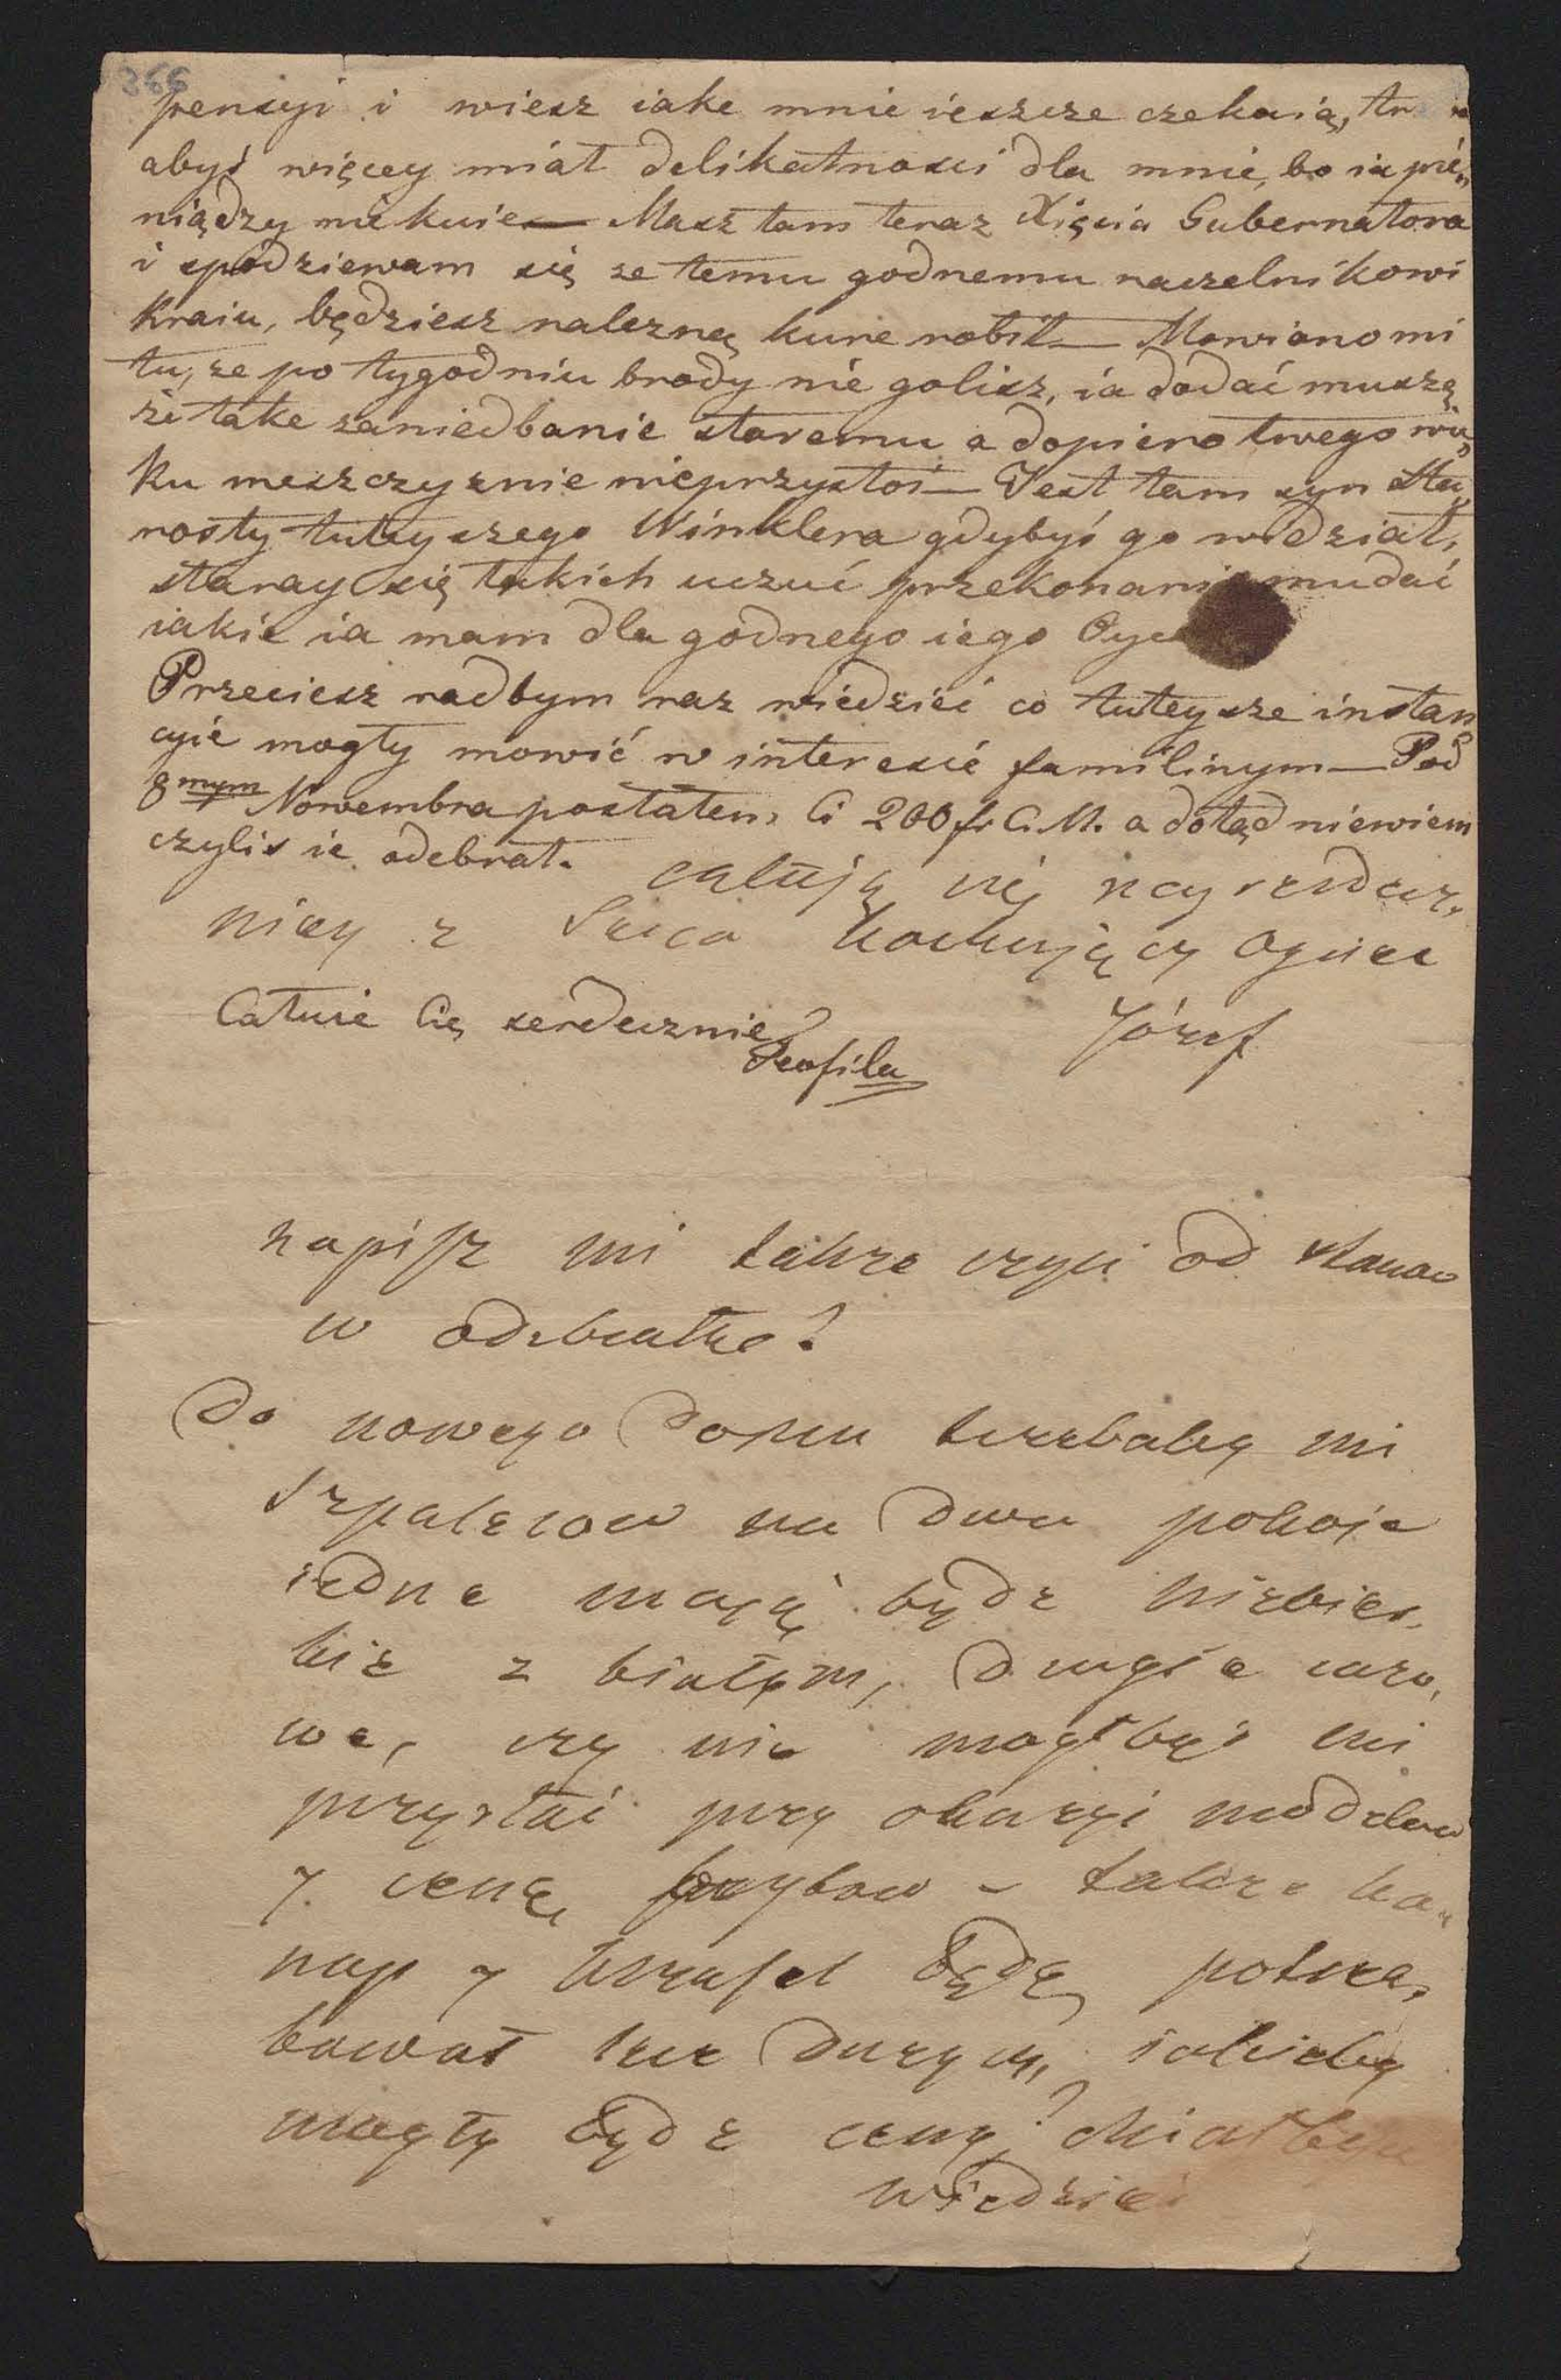 366
pensyi i wiesz iake mnie ieszcze czekaią,
abyś więcey miał delikatności dla mnie, bo ia pie„
niędzy nie kuie — Masz tam teraz Xięcia Gubernatora
i spodziewam się ze temu godnemu naczelnikowi
Kraiu, będziesz nalezną kure robił — Mowiono mi
tu, ze po tygodniu brody nie golisz, ia dodać muszę,
ze take zaniedbanie staremu a dopiero twego wie„
ku meszczyznie nieprzystoi — Jest tam syn Sta„
rosty tuteyszego Winklera gdybyś go widział,
staray się takich uczuć przekonanie mu dać
iakie ia mam dla godnego iego Oyca
Przeciesz radbym raz wiedzieć co tuteysze instan
cyie mogły mowić w interesie familinym — Pod
8mym Nowembra posłałem Ci 200 fr C. M. a dotąd niewiem
czyliś ie odebrał. całuję cię nayserdecz„
niey z serca kochający Oyciec
Całuie Cię serdecznie Józef
Teofila
napisz mi także czyli od stanow
w odebrałeś?
Do nowego domu trzebaby mi
szpalerow na dwa pokoje
iedne mają bydz niebies„
kie z białym, drugie
we, czy nie mogłbyś mi
przysłać przy okazyi modelow
y cenę, także ka„
nap y krzeseł będę potrze„
bował iakieby
mogły bydz ceny? chciałbym
wiedzieć